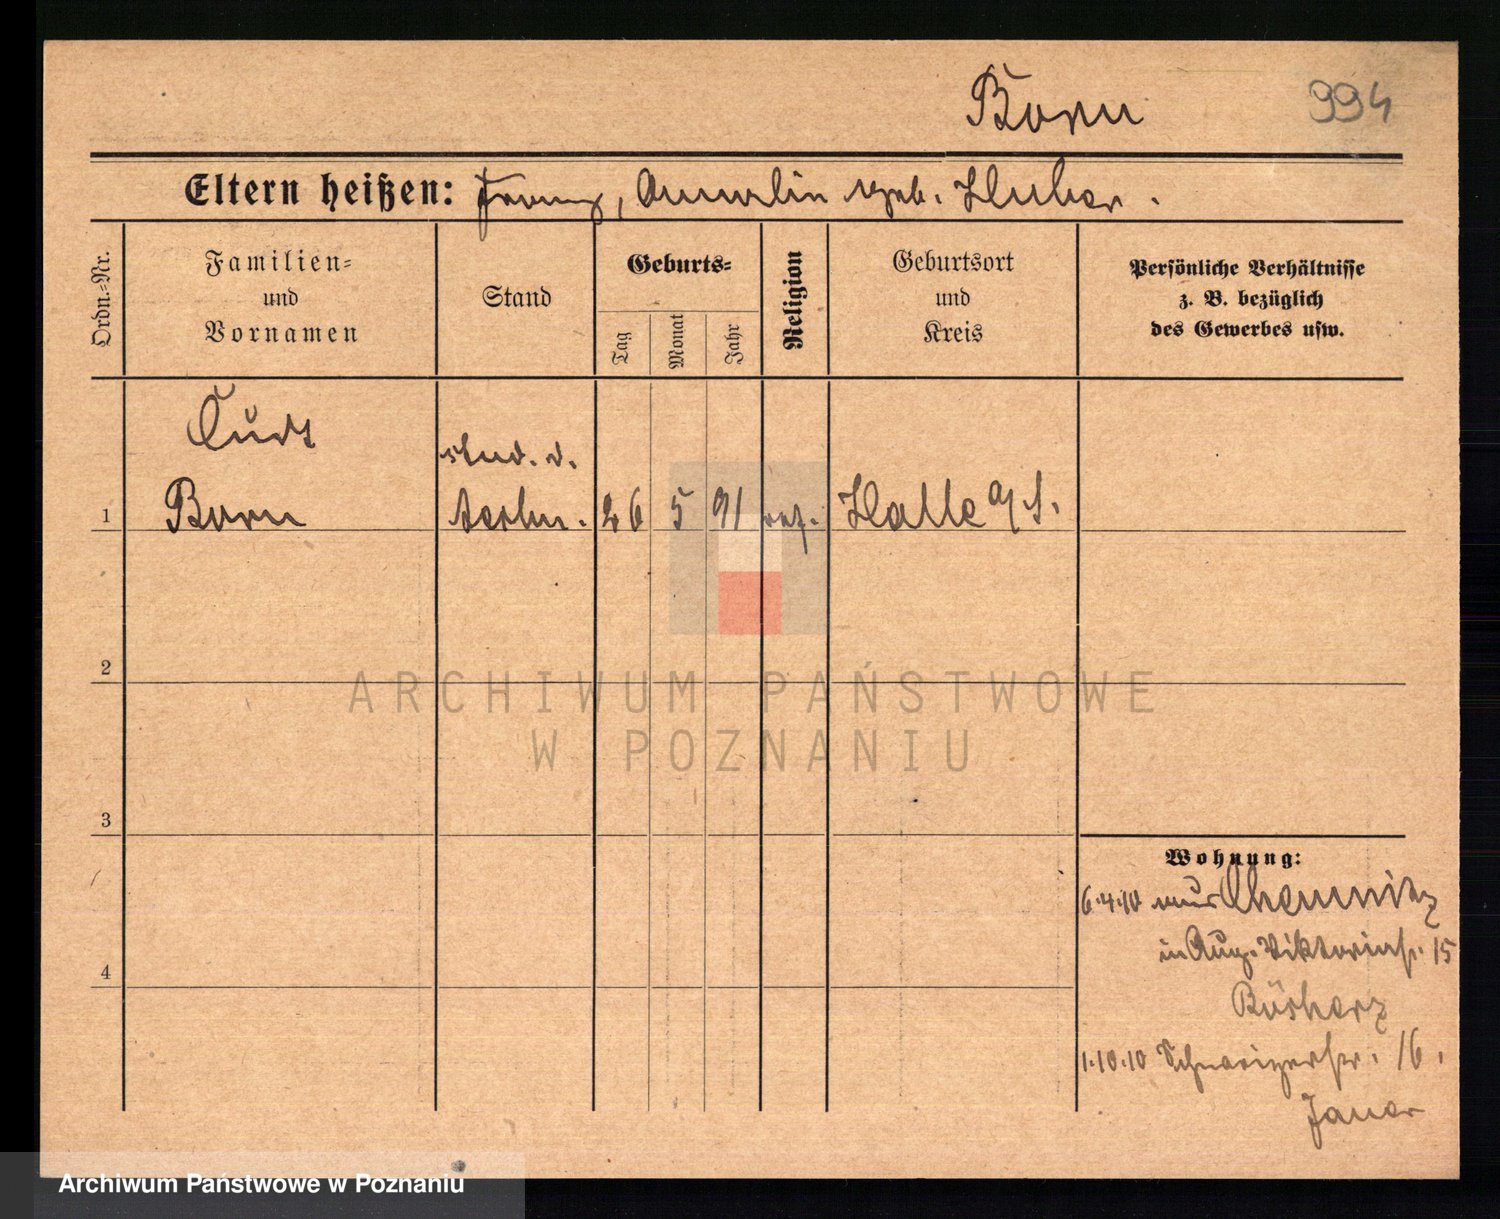 Born 994
Eltern heißen: Franz, Aurelie geb. Huber.
Ordn.=Nr.
Familien=
und
Vornamen
Stand
Geburts=
Tag
Monat
Jahr
Religion
Geburtsort
und
Kreis
Persönliche Verhältnisse
z. B. bezüglich
des Gewerbes usw.
Curt
stud. d.
1 Born techn. 26 5 91 ref. Halle a/S.
2
ARCHIWUM PAŃSTWOWE
W POZNANIU
3
Wohnung:
6.4.10 aus Chemnitz
in Aug. Viktoriastr. 15
4
1.10.10 16.
Archiwum Państwowe w Poznaniu